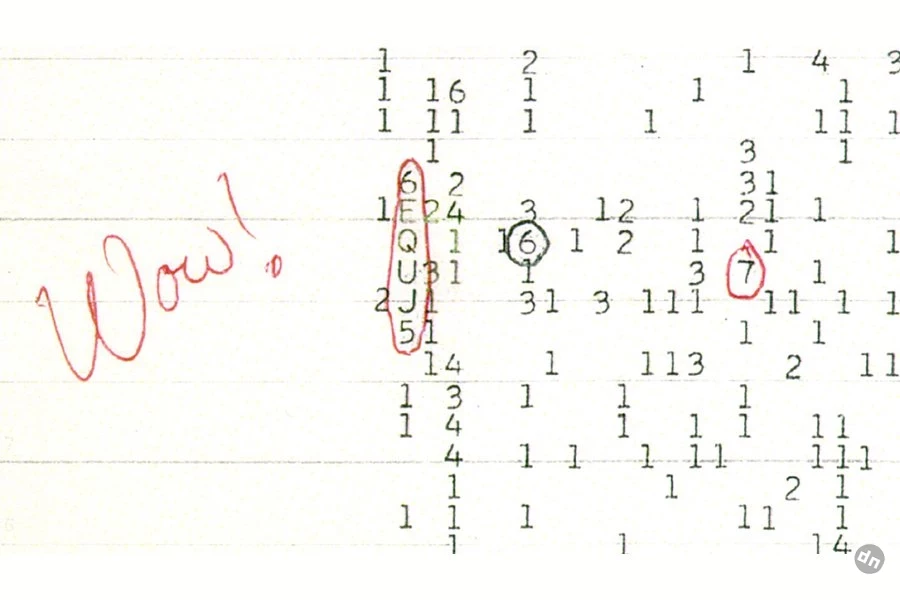 1 2 1 4 3
1 16 1 1 1
1 11 1 1 11 1
1 3 1
6 2 31
1E24 3 12 1 21 1
Q 1 16 1 2 1 1 1
Wow!
U31 1 3 7 1
2J1 31 3 111 11 1 1
51 1 1
14 1 113 2 11
1 3 1 1 1
1 4 1 1 1 11
4 1 1 1 11 111
1 1 2 1
1 1 1 11 1
1 1 14
dn